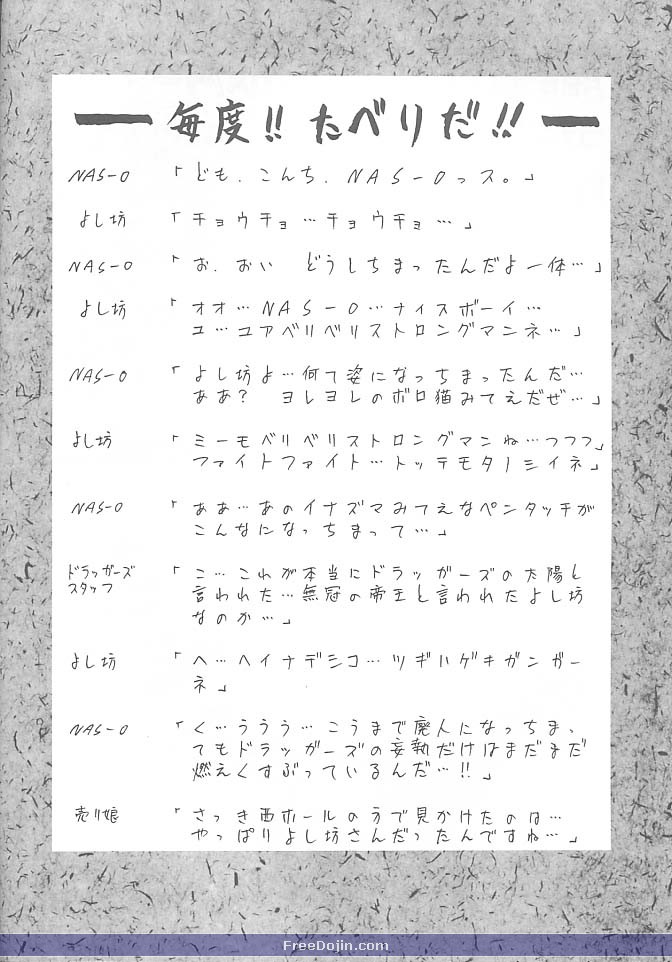 毎度!! たべりだ!!
NAS-O 「ども、こんち、NAS-Oっス。」
よし坊 「チョウチョ…チョウチョ…」
NAS-O 「お、おい どうしちまったんだよ一体…」
よし坊 「オオ…NAS-O…ナイスボーイ…
ユ…ユアベリベリストロングマンネ…」
NAS-O 「よし坊よ…何て姿になっちまったんだ…
ああ? ヨレヨレのボロ猫みてえだぜ…」
よし坊 「ミーモベリベリストロングマンね…フフフ
ファイトファイト…トッテモタノシイネ」
NAS-O 「ああ…あのイナズマみてえなペンタッチが
こんなになっちまって…」
ドラッガーズ
スタッフ
「こ…これが本当にドラッガーズの太陽と
言われた…無冠の帝王と言われたよし坊
なのか…」
よし坊 「ヘ…ヘイナデシコ…ツギハゲキガンガー
ネ」
NAS-O 「く…ううう…こうまで廃人になっちまっ
てもドラッガーズの妄執だけはまだまだ
燃えくすぶっているんだ…!!」
売り娘 「さっき西ホールの方で見かけたのは…
やっぱりよし坊さんだったんですね…」
FreeDojin.com